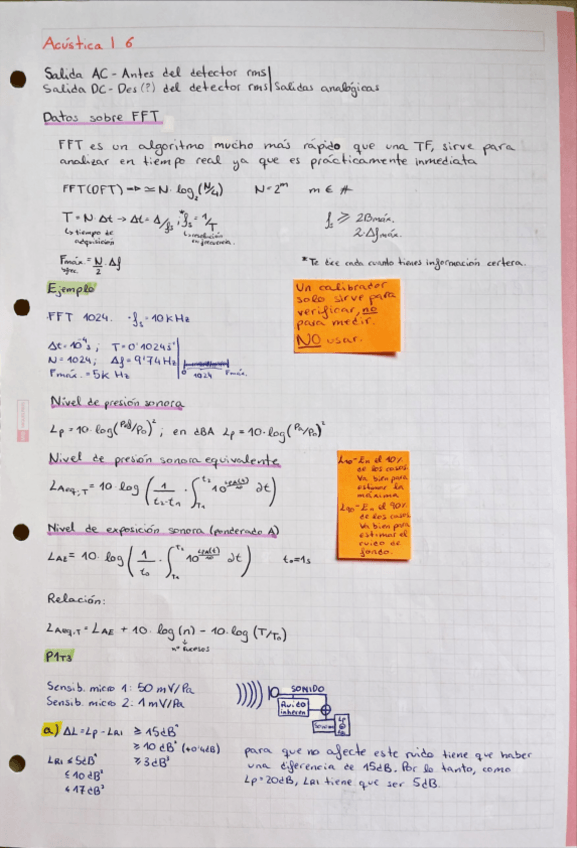 Acústica | 6
Salida AC - Antes del detector rms | Salidas analógicas
Salida DC - Des(?) del detector rms
Datos sobre FFT
FFT es un algoritmo mucho más rápido que una TF, sirve para
analizar en tiempo real ya que es prácticamente inmediata
FFT(DFT) ⇒ ≃ N · log₂(N/4) N = 2^m m ∈ #
T = N · Δt → Δt = 1/fs; *fs = 1/T fs ≥ 2Bmáx.
↳ tiempo de adquisición 2·Δfmáx.
Fmáx. = N/2 · Δf *Te dice cada cuanto tienes información certera.
Ejemplo
FFT 1024. · fs = 10 kHz
Δt = 10⁻⁴s; T = 0'1024s
N = 1024; Δf = 9'74Hz
Fmáx. = 5k Hz 0 1024 Fmáx.
Un calibrador
solo sirve para
verificar, no
para medir.
NO usar.
Nivel de presión sonora
Lp = 10·log(Pef/P0)²; en dBA Lp = 10·log(PA/P0)²
Nivel de presión sonora equivalente
LAeq,T = 10 log (1/(t2-t1) · ∫ 10^(LPA(t)/10) dt)
L10 - En el 10%
de los casos
Va bien para
estimar la
máxima
L90 - En el 90%
de los casos
Va bien para
estimar el
ruido de
fondo.
Nivel de exposición sonora (ponderado A)
LAE = 10 · log (1/t0 · ∫ 10^(LPA(t)/10) dt) t0 = 1s
Relación:
LAeq,T = LAE + 10 · log (n) - 10 · log (T/T0)
nº sucesos
P1T3
Sensib. micro 1: 50 mV/Pa
Sensib. micro 2: 1 mV/Pa
SONIDO
Ruido
inheren.
a) ΔL = Lp - LRI ≥ 15dB
≥ 10 dB (+0'4dB)
≥ 3dB
LRI ≤ 5dB
≤ 10dB
≤ 17dB
para que no afecte este ruido tiene que haber
una diferencia de 15dB. Por lo tanto, como
Lp = 20dB, LRI tiene que ser 5dB.